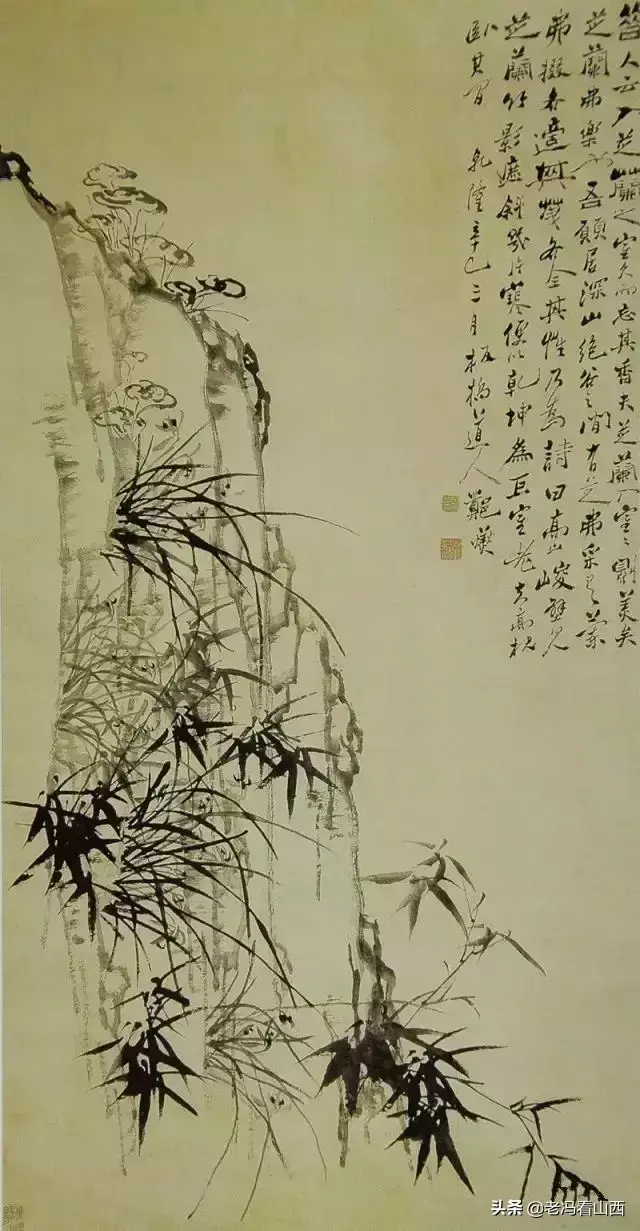 昔人云入芝蘭之室久而忘其香夫芝蘭入室室則美矣
芝蘭弗樂也吾願居深山絕谷之間有芝弗采有蘭
弗掇各適其天各全其性乃為詩曰高山峻壁見
芝蘭竹影遮斜幾片寒便以乾坤為巨室老夫高枕
臥其間 乾隆辛巳三月板橋道人鄭燮
头条 @老冯看山西